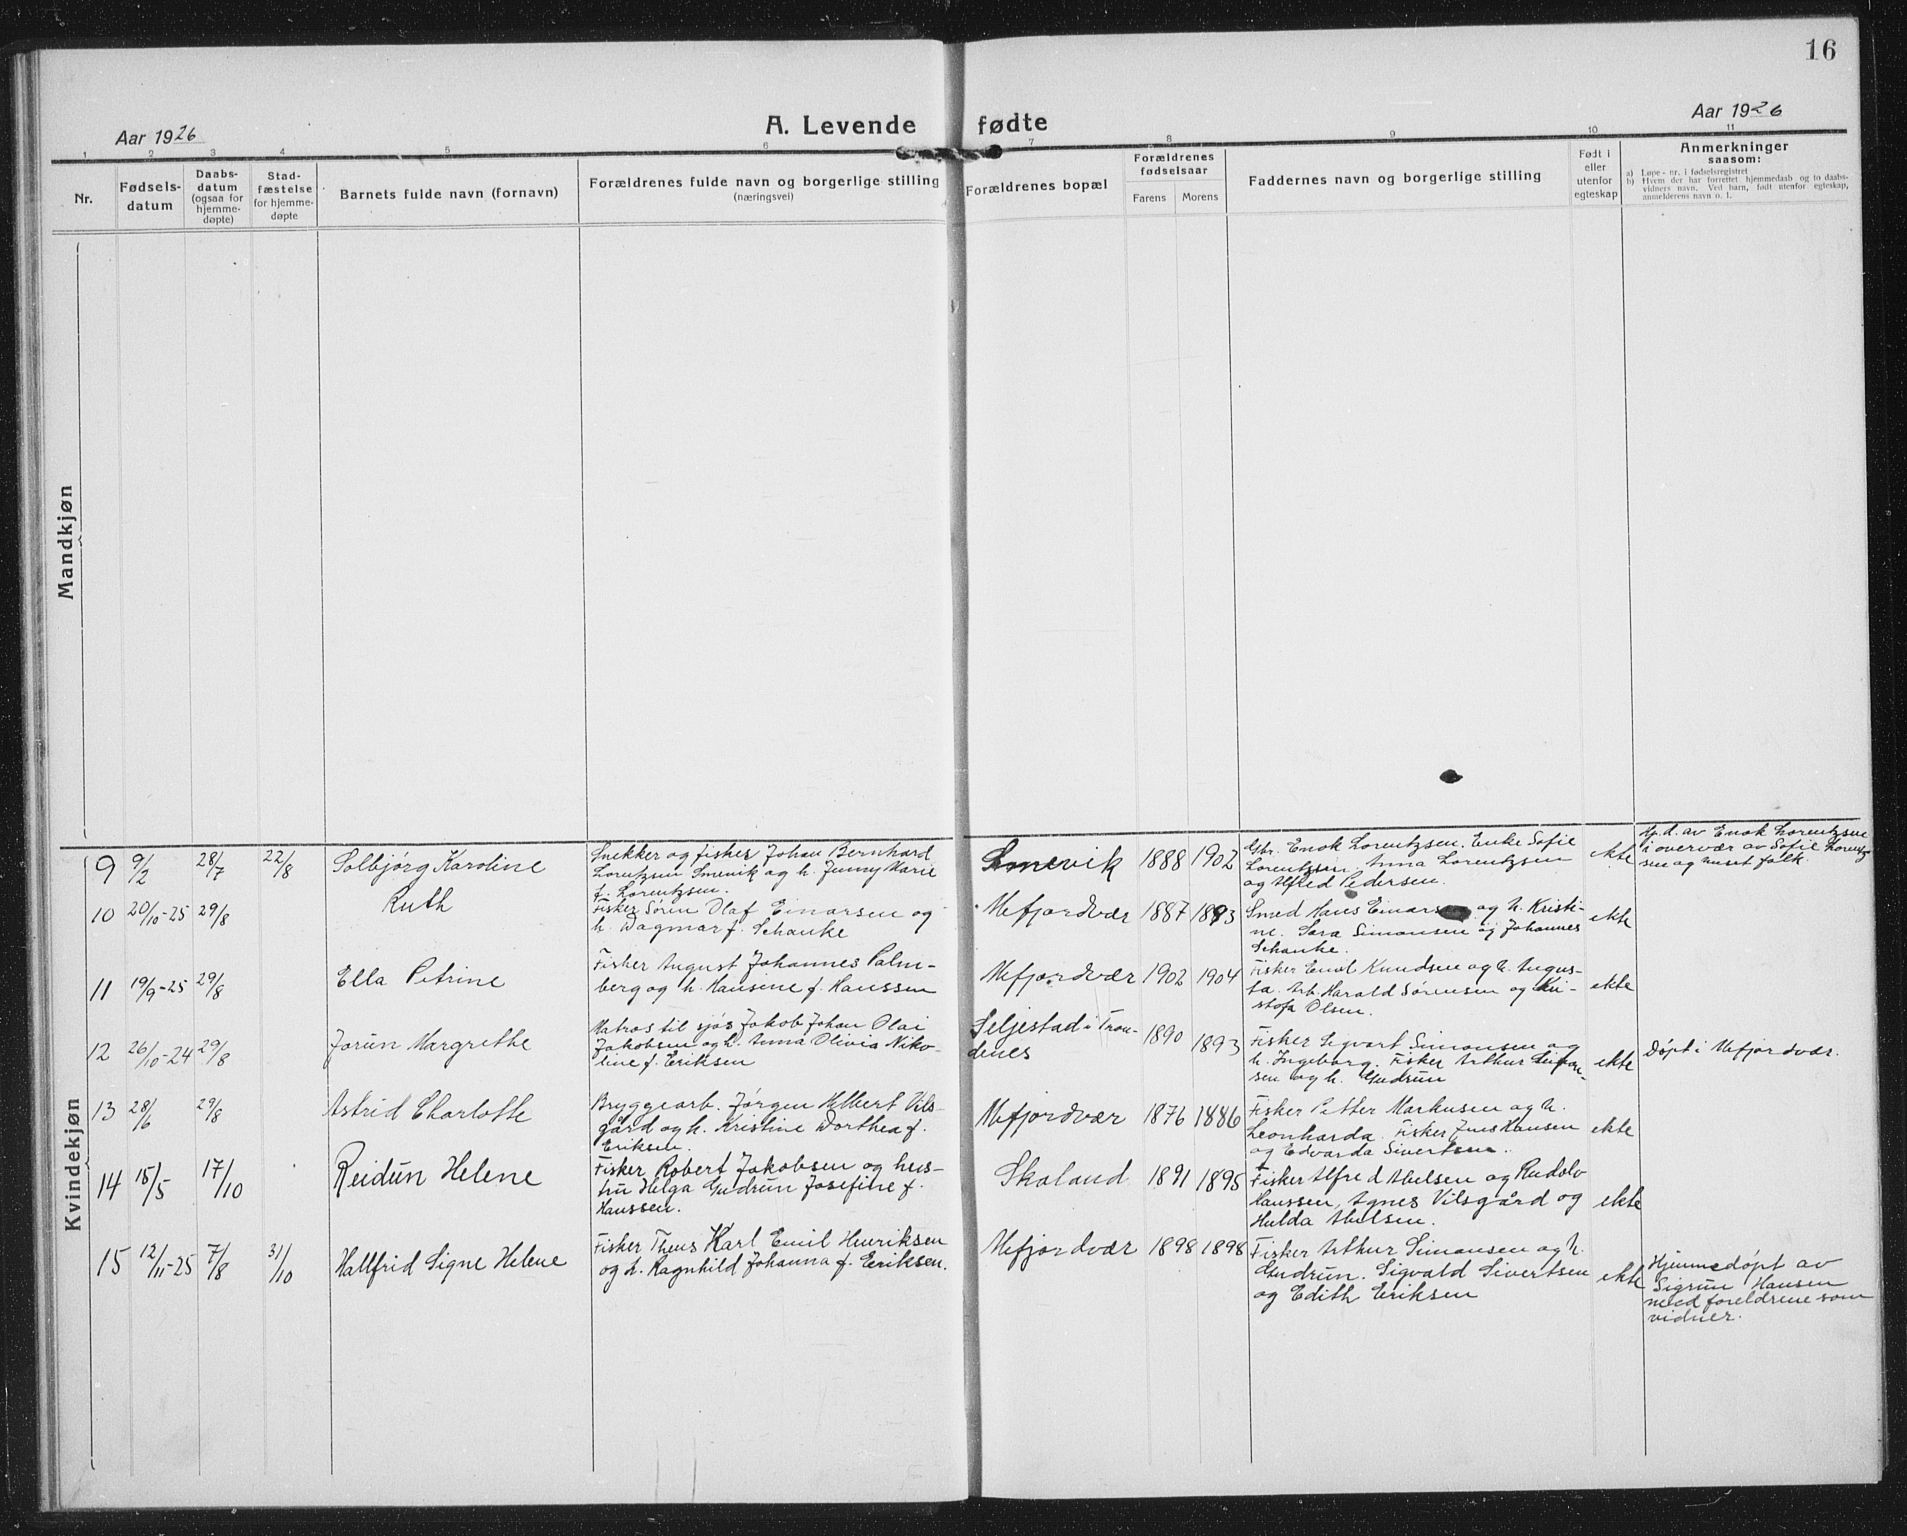 16
Aar 1926
A. Levende fødte
Aar 1926
1 2 3 4 5 6 7 8 9 10 11
Nr.
Fødsels-
datum
Daabs-
datum
(ogsaa for
hjemme-
døpte)
Stad-
fæstelse
for hjemme-
døpte
Barnets fulde navn (fornavn)
Forældrenes fulde navn og borgerlige stilling
(næringsvei)
Forældrenes bopæl
Forældrenes
fødselsaar
Farens Morens
Faddernes navn og borgerlige stilling
Født i
eller
utenfor
egteskap
Anmerkninger
saasom:
a) Løpe-nr. i fødselsregistret
b) Hvem der har forrettet hjemmedaab og to daabs-
vidners navn. Ved barn, født utenfor egteskap,
anmelderens navn o. l.
Mandkjøn
Kvindekjøn
9 9/2 28/7 22/8 Solbjørg Karoline
Snekker og fisker Johan Bernhard
Lorentzsen Smevik og h. Jenny Marie
f. Lorentzsen.
Smevik 1888 1902
Gbr. Enok Lorentzsen. Enke Sofie
Lorentzsen. Anna Lorentzsen
og Alfred Pedersen.
ekte
Hj.d. av Enok Lorentzsen
i overvær av Sofie Lorentz
sen og huset folk.
10 20/10-25 29/8 Ruth
Fisker Søren Olaf Einarsen og
h. Dagmar f. Schanke
Mefjordvær 1887 1893
Smed Hans Einarsen og h. Kristi-
ne. Sara Simonsen og Johannes
Schanke.
ekte
11 19/9-25 29/8 Ella Petrine
Fisker August Johannes Palm-
berg og h. Hansine f. Hanssen
Mefjordvær 1902 1904
Fisker Emil Knudsen og h. Augus-
ta. Arb. Harald Sørensen og Kri-
stofa Olsen.
ekte
12 26/10-24 29/8 Jorun Margrethe
Matros til sjøs Jakob Johan Olai
Jakobsen og h. Anna Olivia Niko-
line f. Eriksen
Seljestad i Tron-
denes
1890 1893
Fisker Sigvart Simonsen og
h. Ingeborg. Fisker Arthur Simon-
sen og h. Gudrun
ekte
Døpt i Mefjordvær.
13 28/6 29/8 Astrid Charlotte
Bryggearb. Jørgen Hilbert Vils-
gård og h. Kristine Dorthea f.
Eriksen.
Mefjordvær 1876 1886
Fisker Petter Markusen og h.
Leonharda. Fisker Jens Hansen
og Edvarda Sivertsen.
ekte
14 15/5 17/10 Reidun Helene
Fisker Robert Jakobsen og hus-
tru Helga Gudrun Josefine f.
Hanssen.
Skaland 1891 1895
Fisker Alfred Abelsen og Rudolv
Hanssen, Agnes Vilsgård og
Hulda Abelsen.
ekte
15 12/11-25 7/8 31/10 Hallfrid Signe Helene
Fisker Theus Karl Emil Henriksen
og h. Ragnhild Johanna f. Eriksen.
Mefjordvær 1898 1898
Fisker Arthur Simonsen og h.
Gudrun. Sigvald Sivertsen
og Edith Eriksen
ekte
Hjemmedøpt av
Sigrun Hansen
med foreldrene som
vidner.